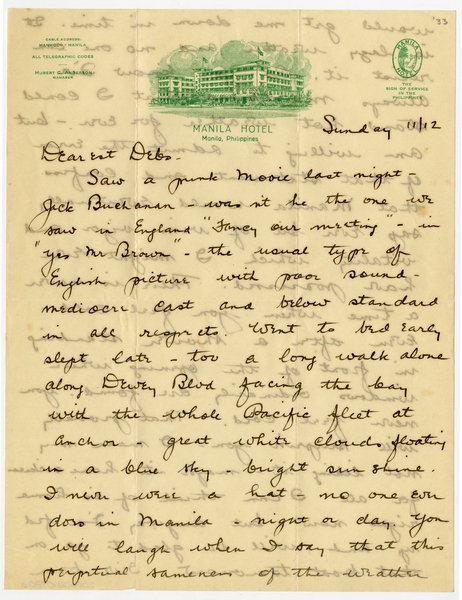 '33
CABLE ADDRESS:
MANHOTEL - MANILA
ALL TELEGRAPHIC CODES
HUBERT C. ANDERSON
MANAGER
MANILA HOTEL
Manila, Philippines
MANILA HOTEL
THE
SIGN OF SERVICE
IN THE
PHILIPPINES
Sunday 11/12
Dearest Debs -
Saw a punk Movie last night -
Jack Buchanan - wasn't he the one we
saw in England "Fancy our meeting" - in
"Yes Mr Brown" - the usual type of
English picture with poor sound -
mediocre cast and below standard
in all respects. Went to bed early
slept late - too a long walk alone
along Dewey Blvd facing the bay
with the whole Pacific fleet at
anchor - great white clouds floating
in a blue sky - bright sun shine.
I never wore a hat - no one ever
does in Manila - night or day. You
will laugh when I say that this
perpetual sameness of the weather